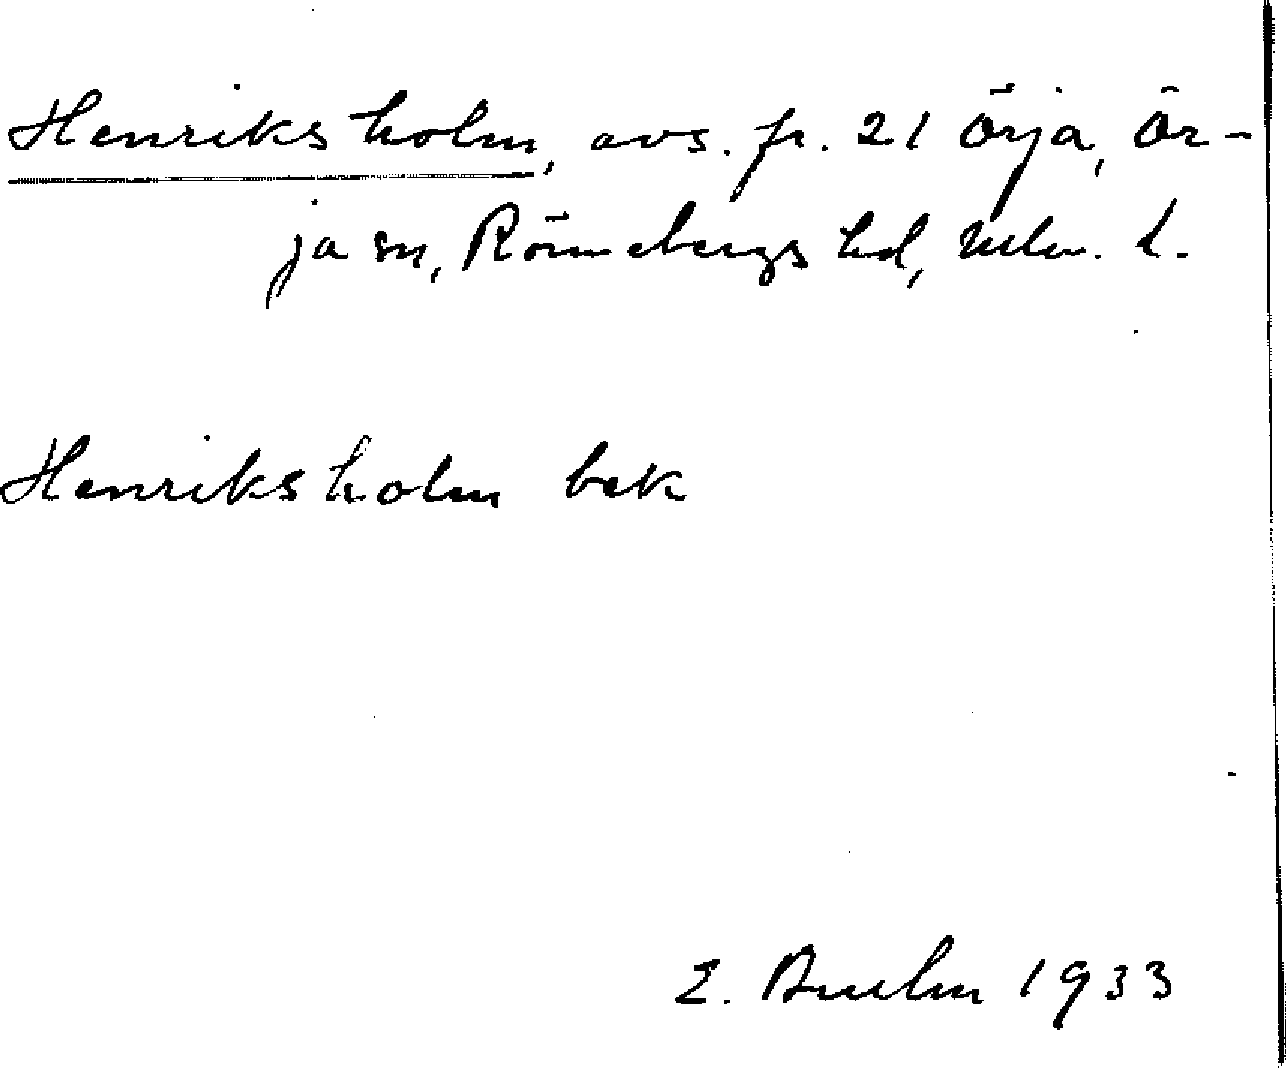 Henriksholm, avs. fr. 21 Örja, Ör-
ja sn, Rönnebergs hd, Mlm. l.
Henriksholm bek
E. 1933